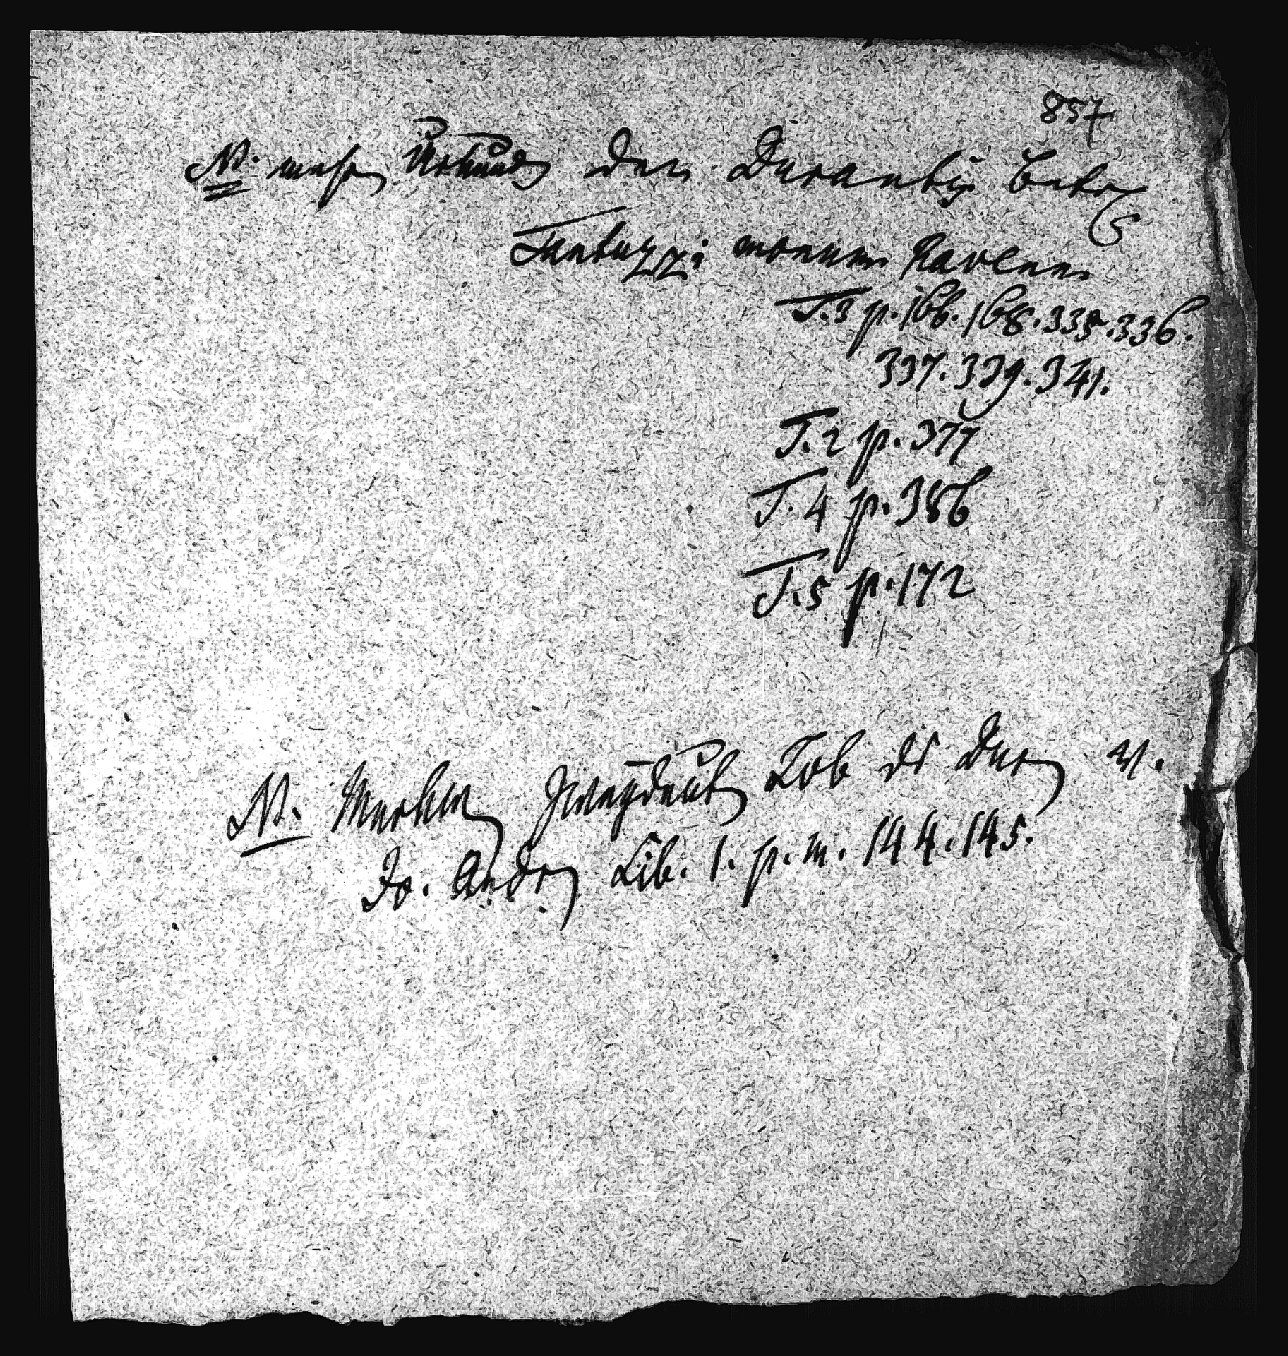 857
NB. mehr Urkund den Durantis betr
Fantuzzi monum Ravenn
T.3 p.166.168.335.336.
337.339.341.
T.2 p.377
T.4 p.386
T.5 p.172
NB. Merkw zweydeut Lob ds Dur
Jo. Andr Lib. 1. p.m. 144.145.